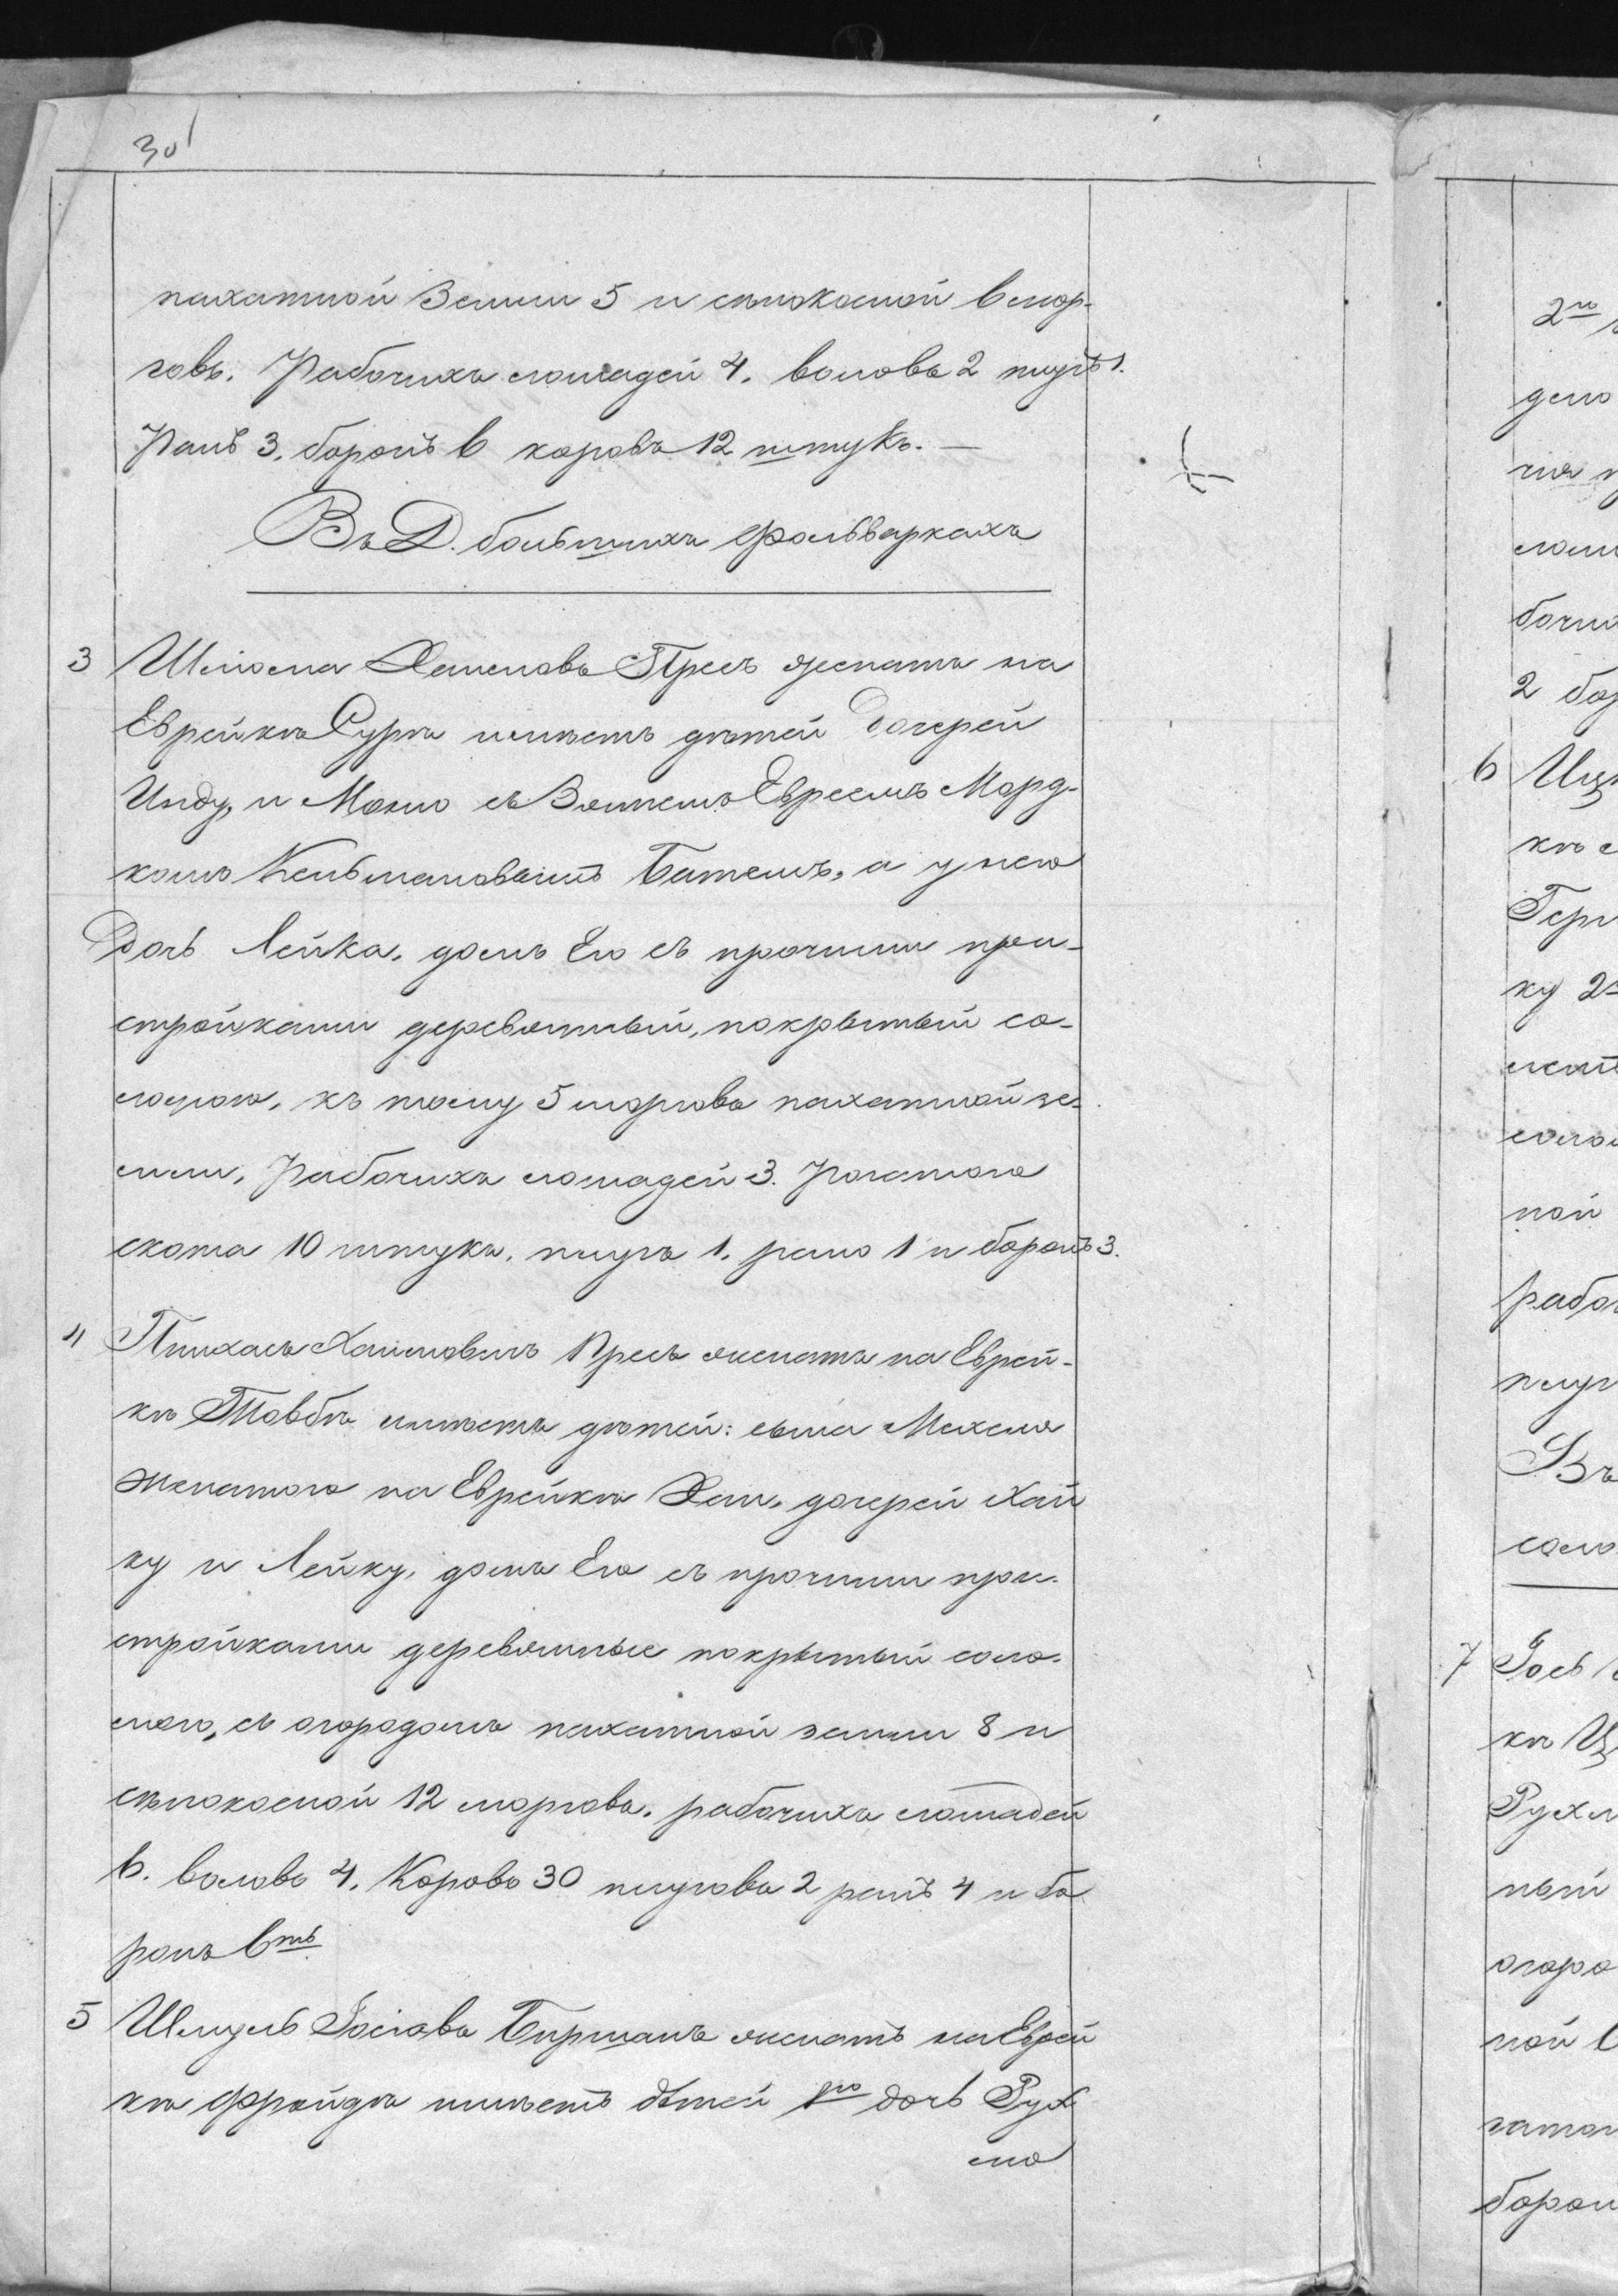 30
пахатной Земли 5 и сѣнокосной 6 мор-
говъ. Рабочихъ лошадей 4. воловъ 2 плугъ 1.
Ралъ 3. боронъ 6 коровъ 12 штукъ. —
Въ Д. большихъ фольваркахъ
3 Шліома Хаимовъ Пресъ женатъ на
Еврейкѣ Сурѣ имѣетъ дѣтей Дочерей
Инду, и Мокю съ Зятемъ Евреемъ Морд-
комъ Кельмановымъ Батемъ, а у него
Дочь Лейка, домъ Его съ прочими при-
стройками деревянный, покрытый со-
ломою, къ тому 5 морговъ пахатной зе-
мли, Рабочихъ лошадей 3. Рогатого
скота 10 штукъ, плугъ 1. рало 1 и боронъ 3.
4 Пинхасъ Хаимовичъ Пресъ женатъ на Еврей-
кѣ Товбѣ имѣетъ дѣтей: сына Мехеля
женатого на Еврейкѣ Хаи, дочерей Хай
ку и Лейку, домъ Его съ прочими при-
стройками деревянные покрытый соло-
мою, съ огородомъ пахатной земли 8 и
сѣнокосной 12 морговъ, рабочихъ лошадей
6. воловъ 4. Коровъ 30 плуговъ 2 ралъ 4 и бо
ронъ 6ть
5 Шмуль Іосіовъ Бирманъ женатъ на Еврей
кѣ Фрейдѣ имѣетъ дѣтей 1го дочь Рух
лю
2го
дело
лош
бочи
2 бор
6 Ицк
кѣ с
Герш
ку 2
соло
ной
рабоч
плуг
Въ
соло
7 Іось
кѣ Ц
Рухл
ный
огоро
ной 6
гатог
борон